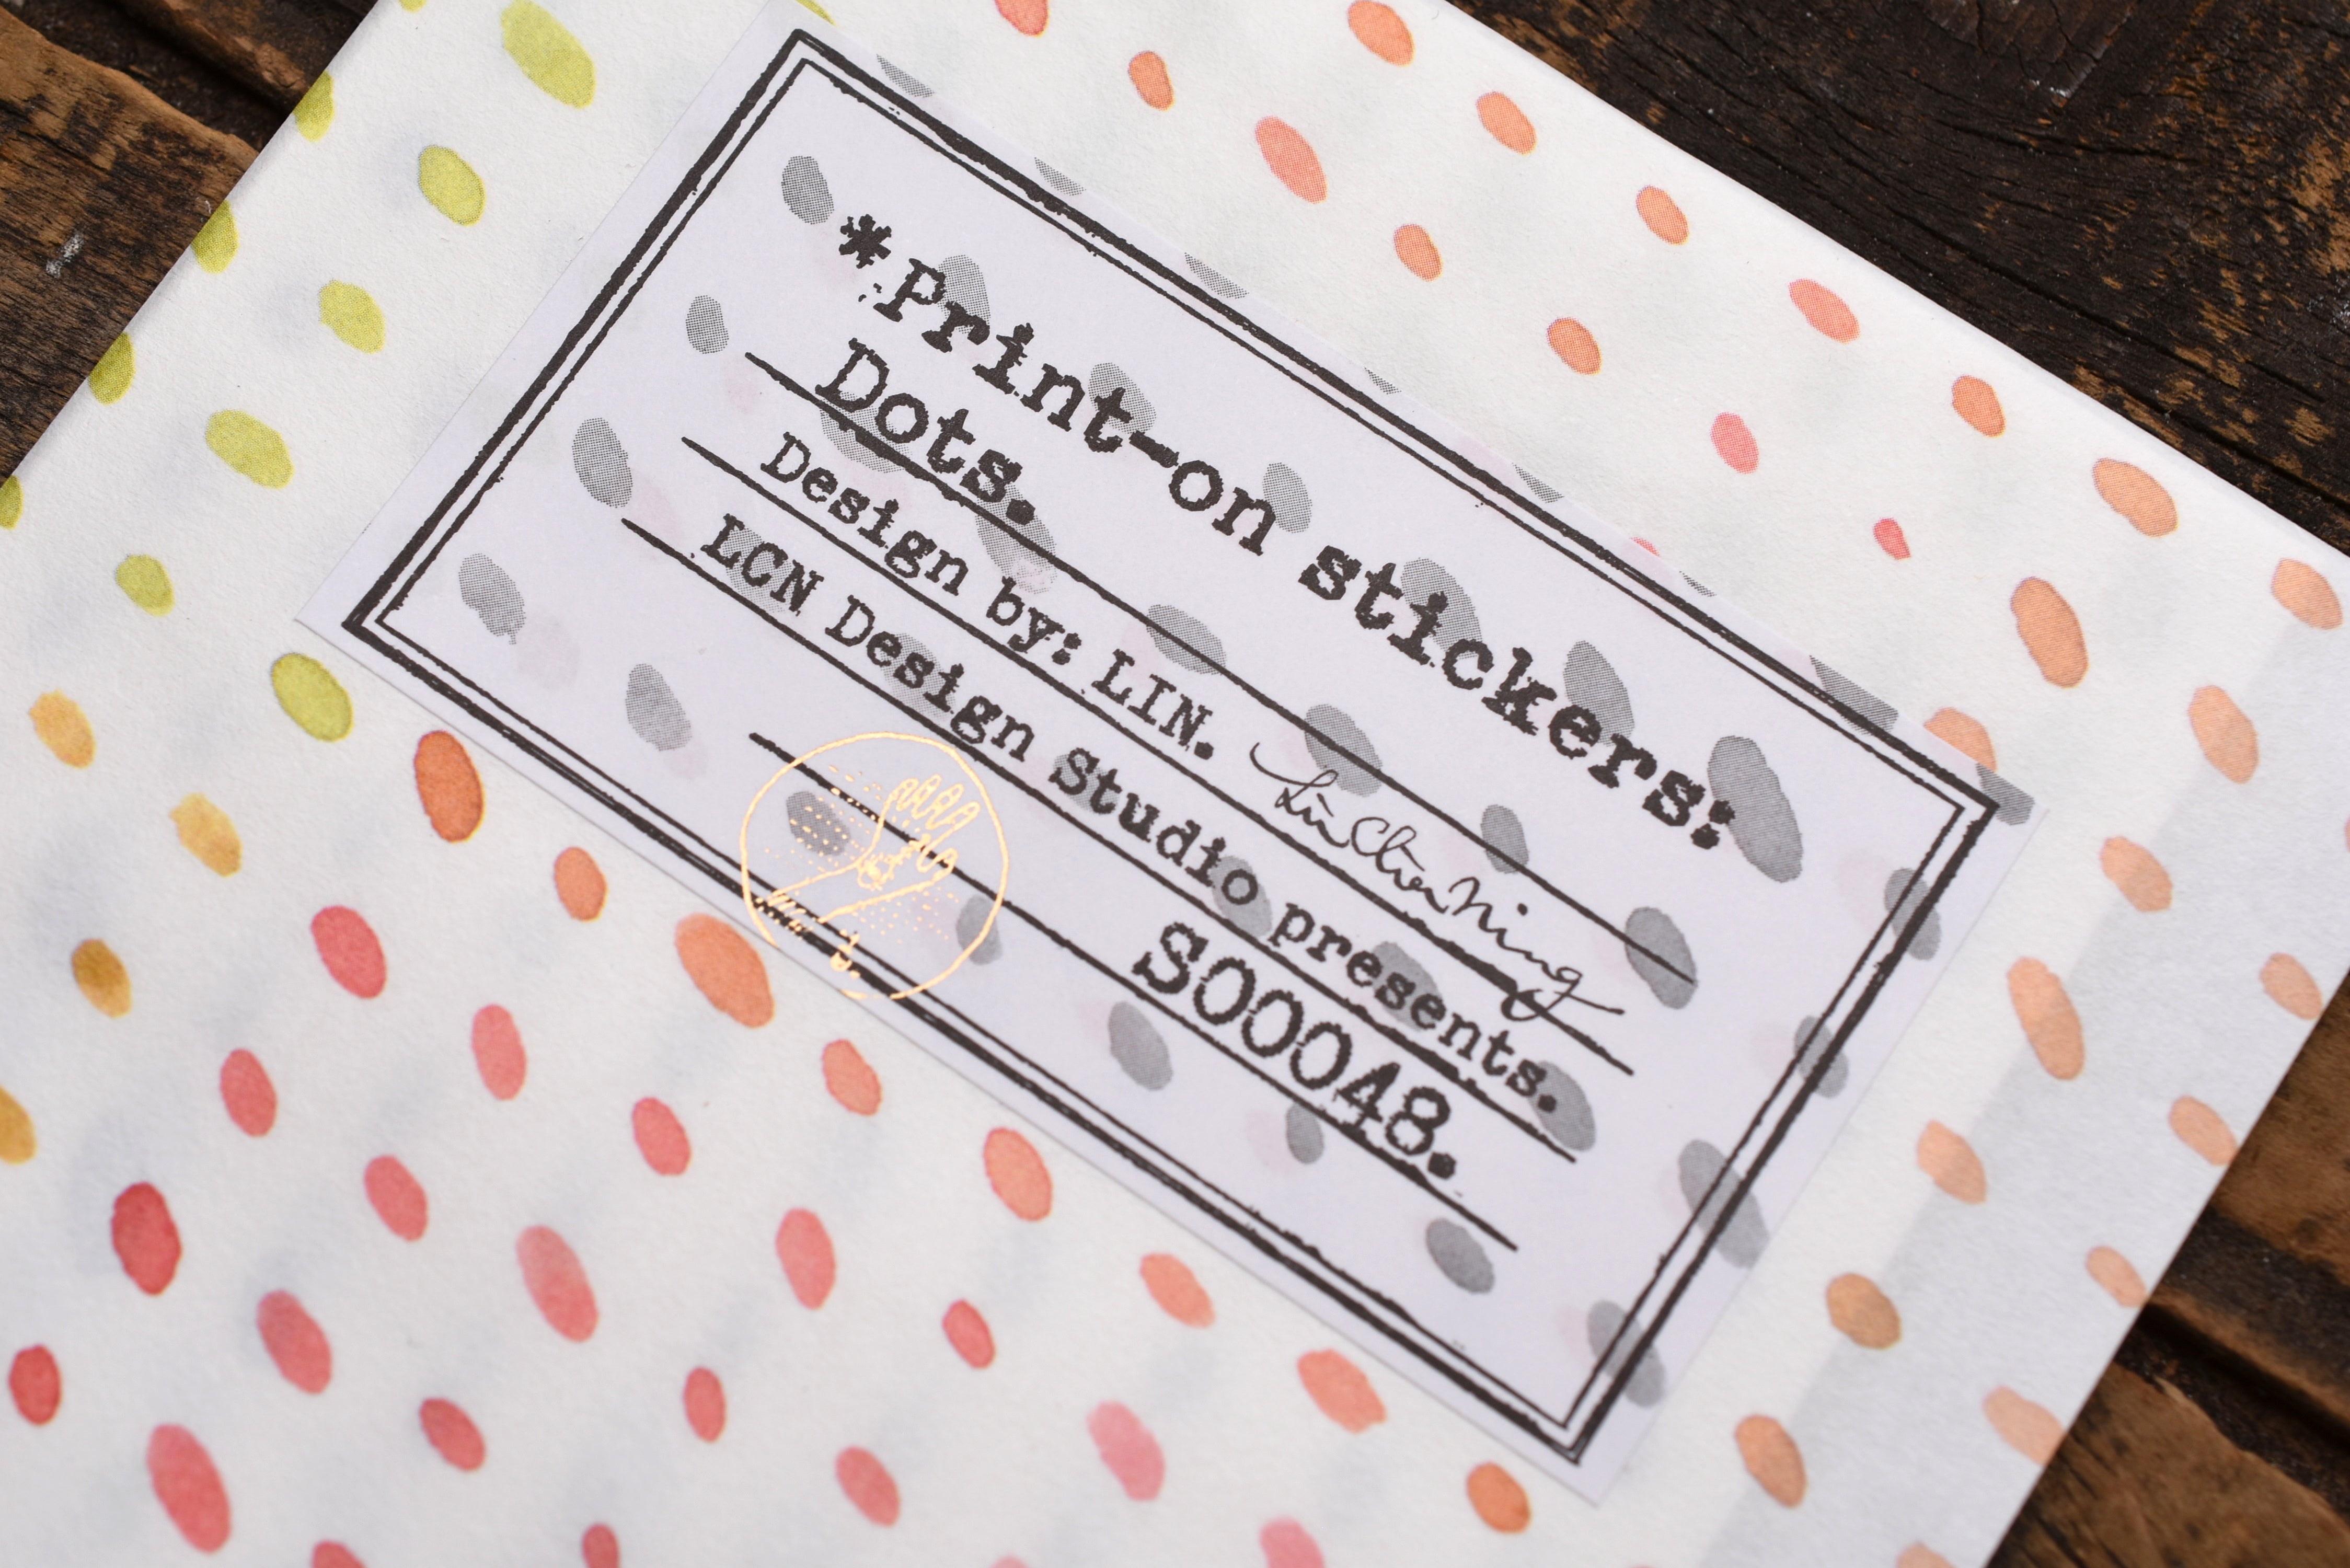 *Print-on stickers:
Dots.
Design by: LIN. Lin Chia Ning
LCN Design Studio presents.
S00048.